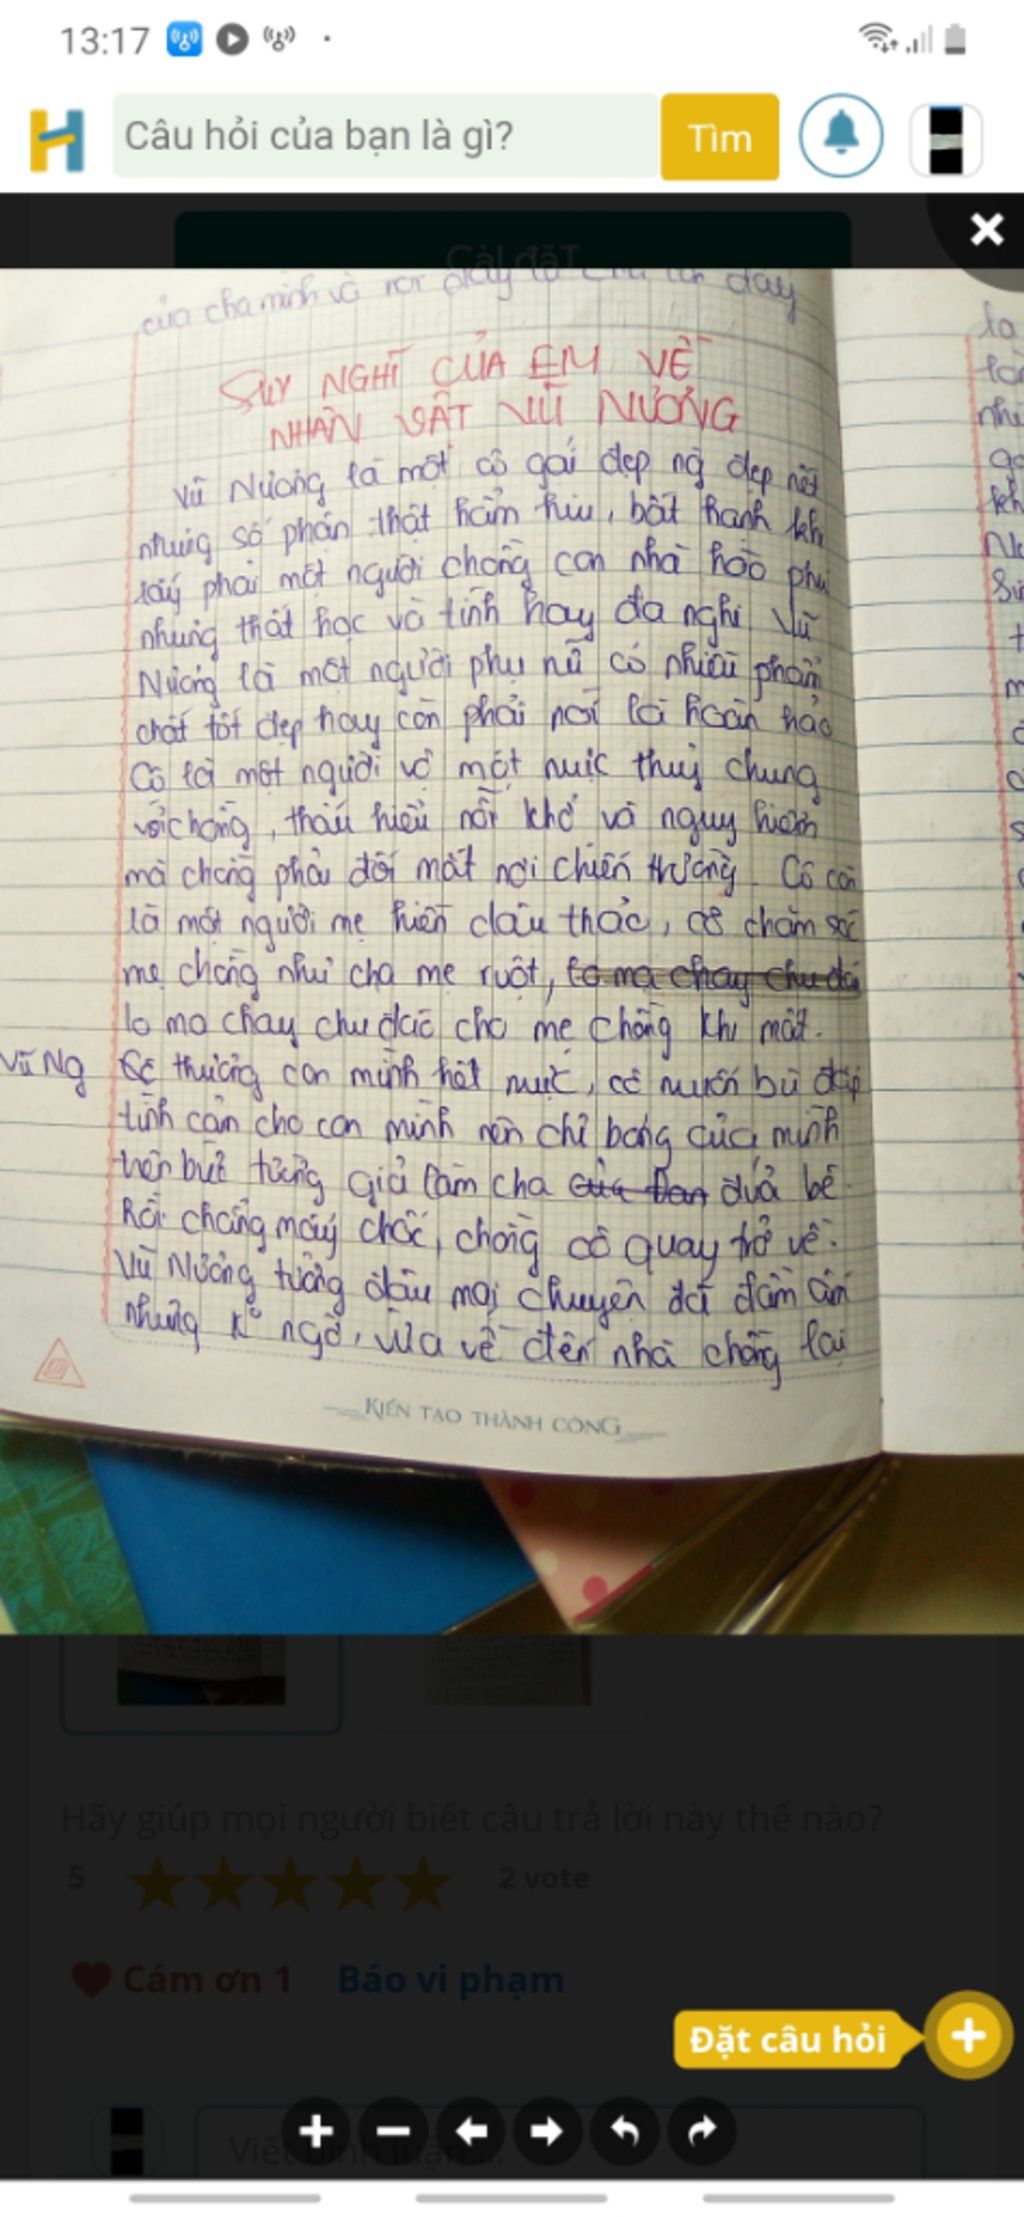 13:17
Câu hỏi của bạn là gì?
Tìm
Cài đặt
của cha mình và nơi đây
SUY NGHĨ CỦA EM VỀ
NHÂN VẬT VŨ NƯƠNG
Vũ Nương là một cô gái đẹp đẹp nết
nhưng số phận thật hẩm hiu, bất hạnh
lấy phải một người chồng con nhà hào phú
nhưng thất học và tính hay đa nghi Vũ
Nương là một người phụ nữ có nhiều phẩm
chất tốt đẹp hay còn phải nói là hoàn hảo
Cô là một người vợ một mực thuỷ chung
với chồng, thấu hiểu nỗi khổ và nguy hiểm
mà chồng phải đối mặt nơi chiến trường. Cô còn
là một người mẹ hiền dâu thảo, cô chăm sóc
mẹ chồng như cha mẹ ruột, lo ma chay chu đá
lo ma chay chu đáo cho mẹ chồng khi mất.
Vũ Ng thương con mình hết mực, cô muốn bù đắp
tình cản cho con mình nên chỉ bóng của mình
trên bức tường giả làm cha đứa bé.
Rồi chẳng mấy chốc, chồng cô quay trở về.
Vũ Nương tưởng đâu mọi chuyện đã đầm ấm
nhưng k° ngờ, vừa về đến nhà chồng lại
KIẾN TẠO THÀNH CÔNG
Hãy giúp mọi người biết câu trả lời này thế nào?
5
2 vote
Cám ơn 1
Báo vi phạm
Đặt câu hỏi